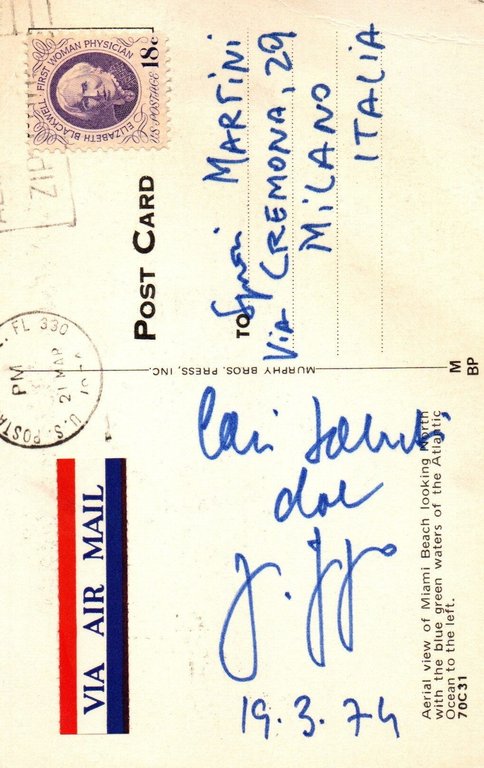 VIA AIR MAIL
Cari saluti
dal
19.3.74
Aerial view of Miami Beach looking North
with the blue green waters of the Atlantic
Ocean to the left.
70C31
MURPHY BROS. PRESS, INC.
M
BP
U.S. POSTA
FL 330
PM
21 MAR
POST CARD
ELIZABETH BLACKWELL · FIRST WOMAN PHYSICIAN
18c
US POSTAGE
ZIP
TO
MARTINI
Via CREMONA, 29
MILANO
ITALIA